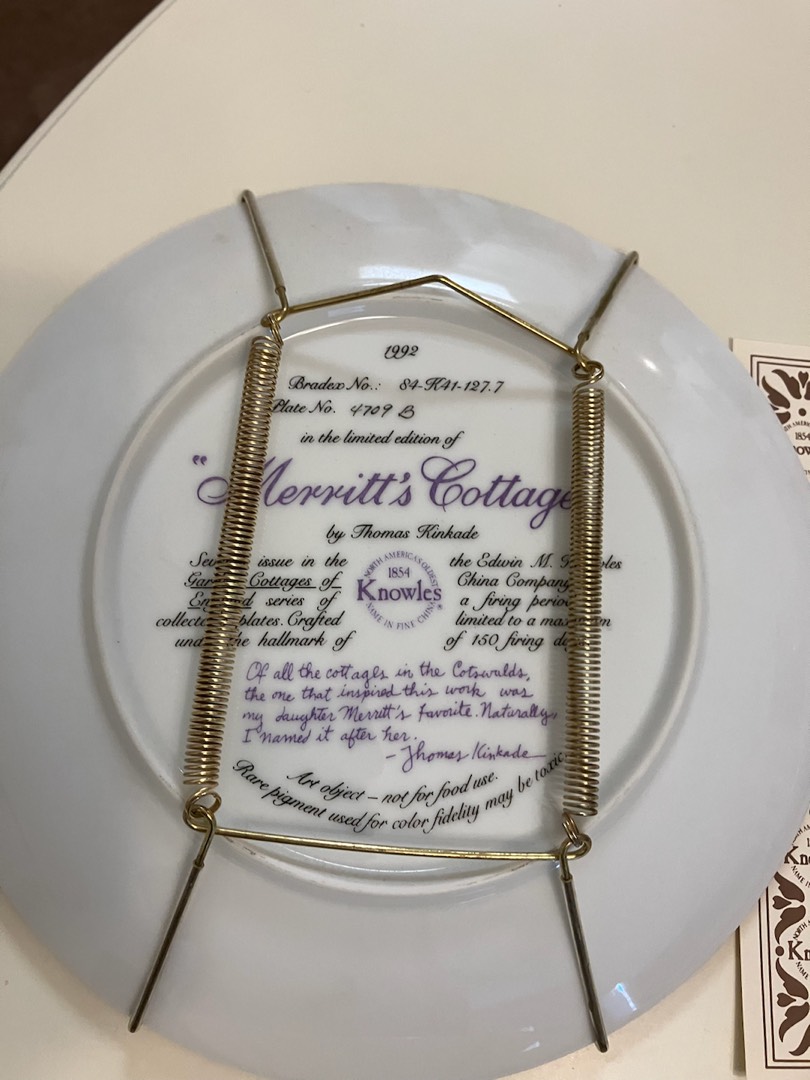 1992
Bradex No.: 84-K41-127.7
Plate No. 4709 B
in the limited edition of
"Merritt's Cottage
by Thomas Kinkade
issue in the
Cottages of
series of
plates. Crafted
the hallmark of
NORTH AMERICA'S OLDEST
1854
Knowles
NAME IN FINE CHINA
the Edwin M.
China Company
a firing
limited to a
of 150 firing
Of all the cottages in the Cotswalds,
the one that inspired this work was
my daughter Merritt's favorite. Naturally,
I named it after her.
- Thomas Kinkade
Art object – not for food use.
Rare pigment used for color fidelity may be toxic.